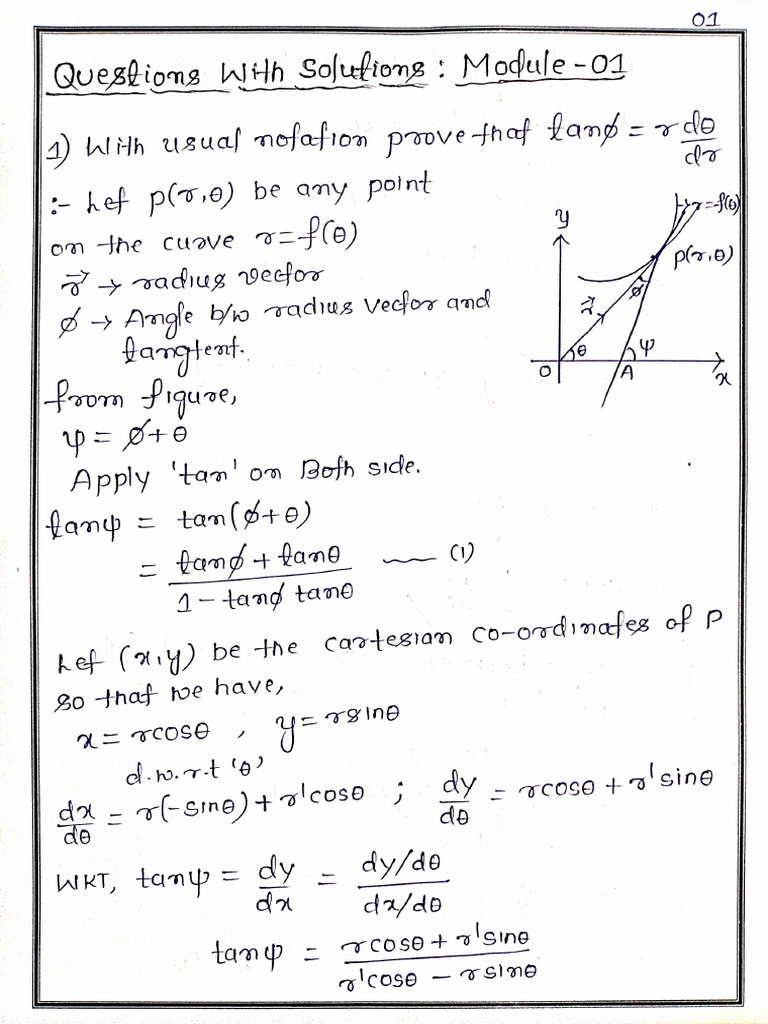 01
Questions With Solutions: Module-01
1) With usual notation prove that tanϕ = r dθ/dr
:- Let p(r,θ) be any point
on the curve r=f(θ)
r⃗ → radius vector
ϕ → Angle b/w radius vector and
tangtent.
from figure,
ψ = ϕ+θ
Apply 'tan' on Both side.
tanψ = tan(ϕ+θ)
= (tanϕ + tanθ)/(1 - tanϕ tanθ) —— (1)
y
r=f(θ)
P(r,θ)
ϕ
r⃗
θ
ψ
O
A
x
Let (x,y) be the cartesian co-ordinates of P
so that we have,
x = rcosθ , y = rsinθ
d.w.r.t 'θ'
dx/dθ = r(-sinθ) + r'cosθ ; dy/dθ = rcosθ + r'sinθ
WKT, tanψ = dy/dx = (dy/dθ)/(dx/dθ)
tanψ = (rcosθ + r'sinθ)/(r'cosθ - rsinθ)